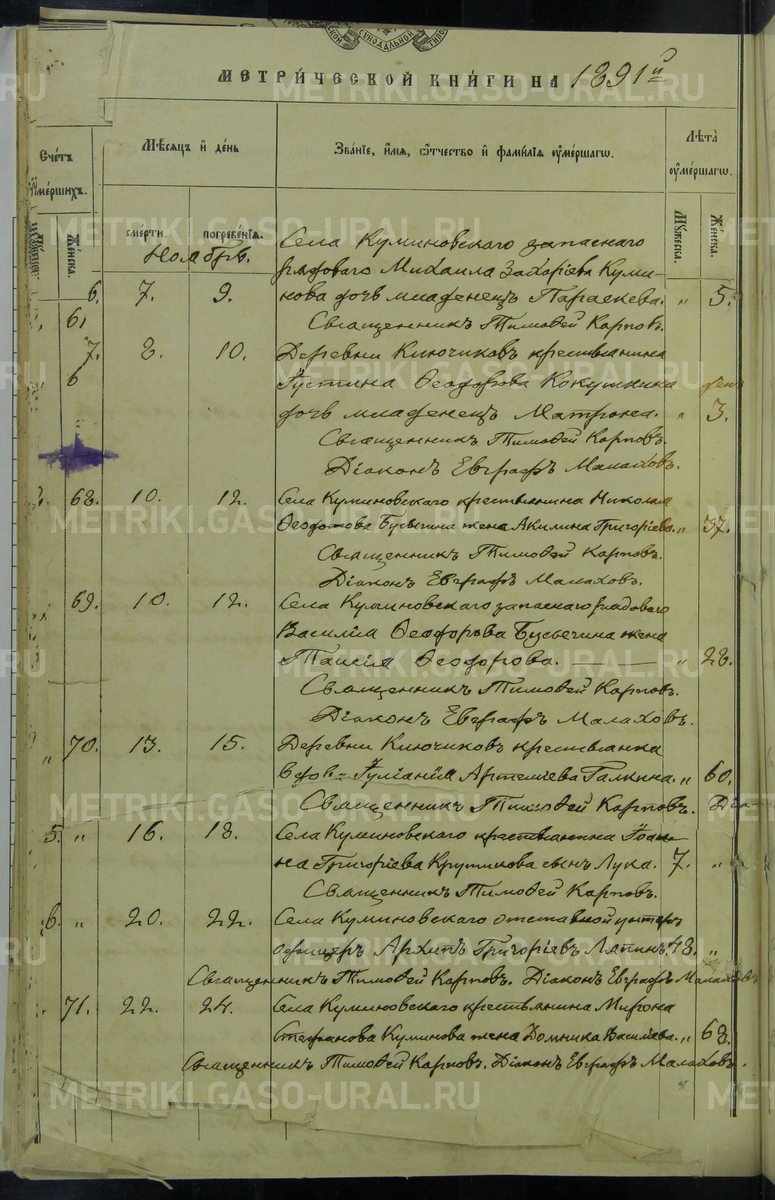 МЕТРИЧЕСКОЙ КНИГИ НА 1891й
Счетъ оумершихъ.
Мѣсяцъ и день
Званіе, имя, отчество и фамилія оумершаго.
Лѣта оумершаго.
Женска.
смерти.
погребенія.
Мужеска.
Женска.
Ноябрь.
Села Куминовскаго запаснаго
рядоваго Михаила Захаріева Куми-
6. 7. 9. нова дочь младенецъ Параскева. " 5.
61 Священникъ Тимоѳей Карповъ.
7. 8. 10. Деревни Ключиковъ крестьянина
6 Іустина Ѳеодорова Кокушкина дня
дочь младенецъ Матрона. " 3.
Священникъ Тимоѳей Карповъ.
Діаконъ Евграфъ Малаховъ.
68. 10. 12. Села Куминовскаго крестьянина Николая
Ѳеодотова Бусыгина жена Акилина Григоріева. " 37.
Священникъ Тимоѳей Карповъ.
Діаконъ Евграфъ Малаховъ.
69. 10. 12. Села Куминовскаго запаснаго рядоваго
Василія Ѳеодорова Бусыгина жена
Таисія Ѳеодорова. " 28.
Священникъ Тимоѳей Карповъ.
Діаконъ Евграфъ Малаховъ.
" 70. 13. 15. Деревни Ключиковъ крестьянка
вдова Іуліанія Артеміева Галкина. " 60.
Священникъ Тимоѳей Карповъ. Діа-
5. " 16. 18. Села Куминовскаго крестьянина Іоан-
на Григоріева Крутикова сынъ Лука. 7. "
Священникъ Тимоѳей Карповъ.
6. " 20. 22. Села Куминовскаго отставной унтеръ
офицеръ Архипъ Григоріевъ Ляпинъ. 48. "
Священникъ Тимоѳей Карповъ. Діаконъ Евграфъ Малаховъ
71. 22. 24. Села Куминовскаго крестьянина Мирона
Стефанова Куминова жена Домника Васильева. " 68.
Священникъ Тимоѳей Карповъ. Діаконъ Евграфъ Малаховъ.
METRIKI.GASO-URAL.RU